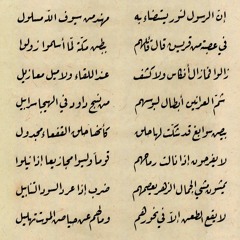 إن الرسول لنور يستضاء به مهند من سيوف الله مسلول
في عصبة من قريش قال قائلهم ببطن مكة لما أسلموا زولوا
زالوا فما زال أنكاس ولا كشف عند اللقاء ولا ميل معازيل
شم العرانين أبطال لبوسهم من نسج داود في الهيجا سرابيل
بيض سوابغ قد شكت لها حلق كأنها حلق القفعاء مجدول
لا يفرحون إذا نالت رماحهم قوما وليسوا مجازيعا إذا نيلوا
يمشون مشي الجمال الزهر يعصمهم ضرب إذا عرد السود التنابيل
لا يقع الطعن إلا في نحورهم وما لهم عن حياض الموت تهليل